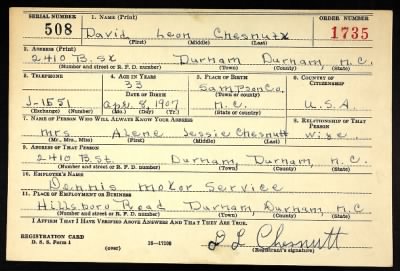 SERIAL NUMBER 1. NAME (Print) ORDER NUMBER
508 David Leon Chesnutt 1735
(First) (Middle) (Last)
2. ADDRESS (Print)
2410 B. St Durham Durham, N.C.
(Number and street or R. F. D. number) (Town) (County) (State)
3. TELEPHONE 4. AGE IN YEARS 5. PLACE OF BIRTH 6. COUNTRY OF CITIZENSHIP
33 Sampson Co.
DATE OF BIRTH (Town or county)
J-1551 Apr. 8, 1907 N.C. U.S.A.
(Exchange) (Number) (Mo.) (Day) (Yr.) (State or country)
7. NAME OF PERSON WHO WILL ALWAYS KNOW YOUR ADDRESS 8. RELATIONSHIP OF THAT PERSON
Mrs Alene Jessie Chesnutt Wife
(Mr., Mrs., Miss) (First) (Middle) (Last)
9. ADDRESS OF THAT PERSON
2410 B. St. Durham, Durham, N.C.
(Number and street or R. F. D. number) (Town) (County) (State)
10. EMPLOYER'S NAME
Dennis Motor Service
11. PLACE OF EMPLOYMENT OR BUSINESS
Hillsboro Road Durham, Durham, N.C
(Number and street or R. F. D. number) (Town) (County) (State)
I AFFIRM THAT I HAVE VERIFIED ABOVE ANSWERS AND THAT THEY ARE TRUE.
REGISTRATION CARD
D. S. S. Form 1 (over) 16-17108 D L Chesnutt
(Registrant's signature)